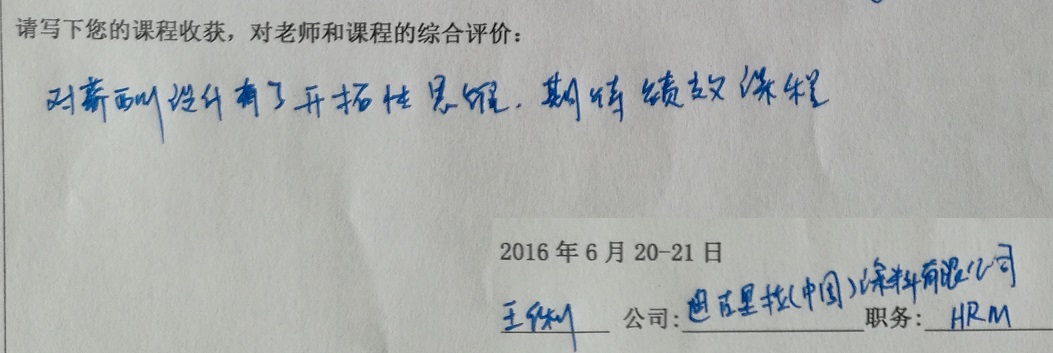 请写下您的课程收获，对老师和课程的综合评价：
对薪酬设计有了开拓性思维，期待绩效课程
2016 年 6 月 20-21 日
王 公司：迪古里拉（中国）涂料有限公司 职务：HRM